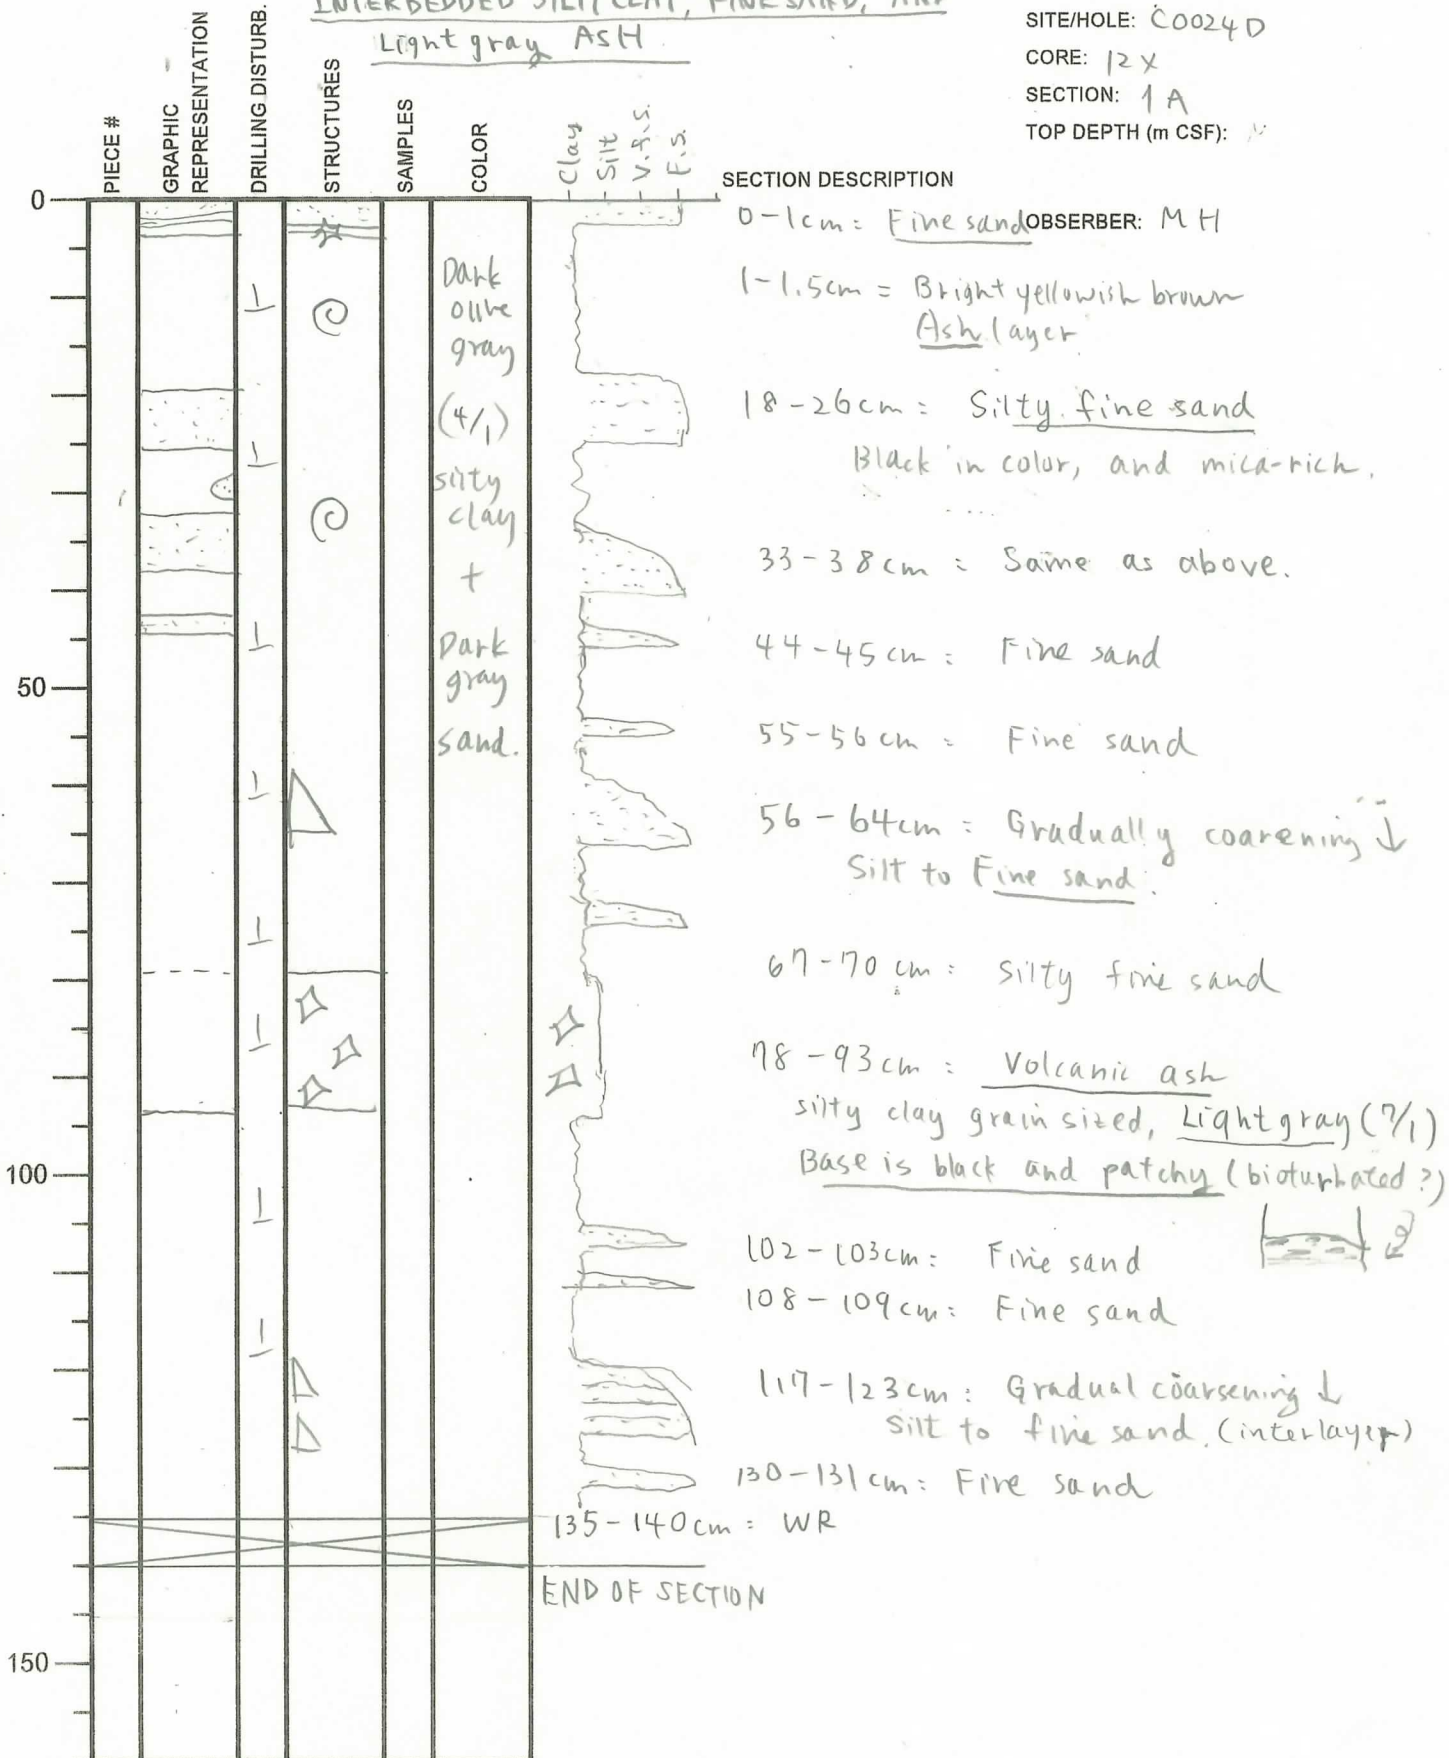 INTERBEDDED SILTY CLAY, FINE SAND, AND
Light gray ASH
SITE/HOLE: C0024D
CORE: 12X
SECTION: 1A
TOP DEPTH (m CSF):
PIECE #
GRAPHIC
REPRESENTATION
DRILLING DISTURB.
STRUCTURES
SAMPLES
COLOR
Clay
Silt
V.f.s.
F.s.
SECTION DESCRIPTION
0
0-1cm = Fine sand OBSERBER: MH
1-1.5cm = Bright yellowish brown
Ash layer
Dark
olive
gray
(4/1)
silty
clay
+
Dark
gray
sand.
18-26cm = Silty fine sand
Black in color, and mica-rich.
33-38cm = Same as above.
44-45cm = Fine sand
50
55-56cm = Fine sand
56-64cm = Gradually coarening ↓
Silt to Fine sand.
67-70cm = Silty fine sand
78-93cm = Volcanic ash
silty clay grain sized, Light gray (7/1)
Base is black and patchy (bioturbated?)
100
102-103cm = Fine sand
108-109cm = Fine sand
117-123cm = Gradual coarsening ↓
Silt to fine sand. (interlayer)
130-131cm = Fine sand
135-140cm = WR
END OF SECTION
150